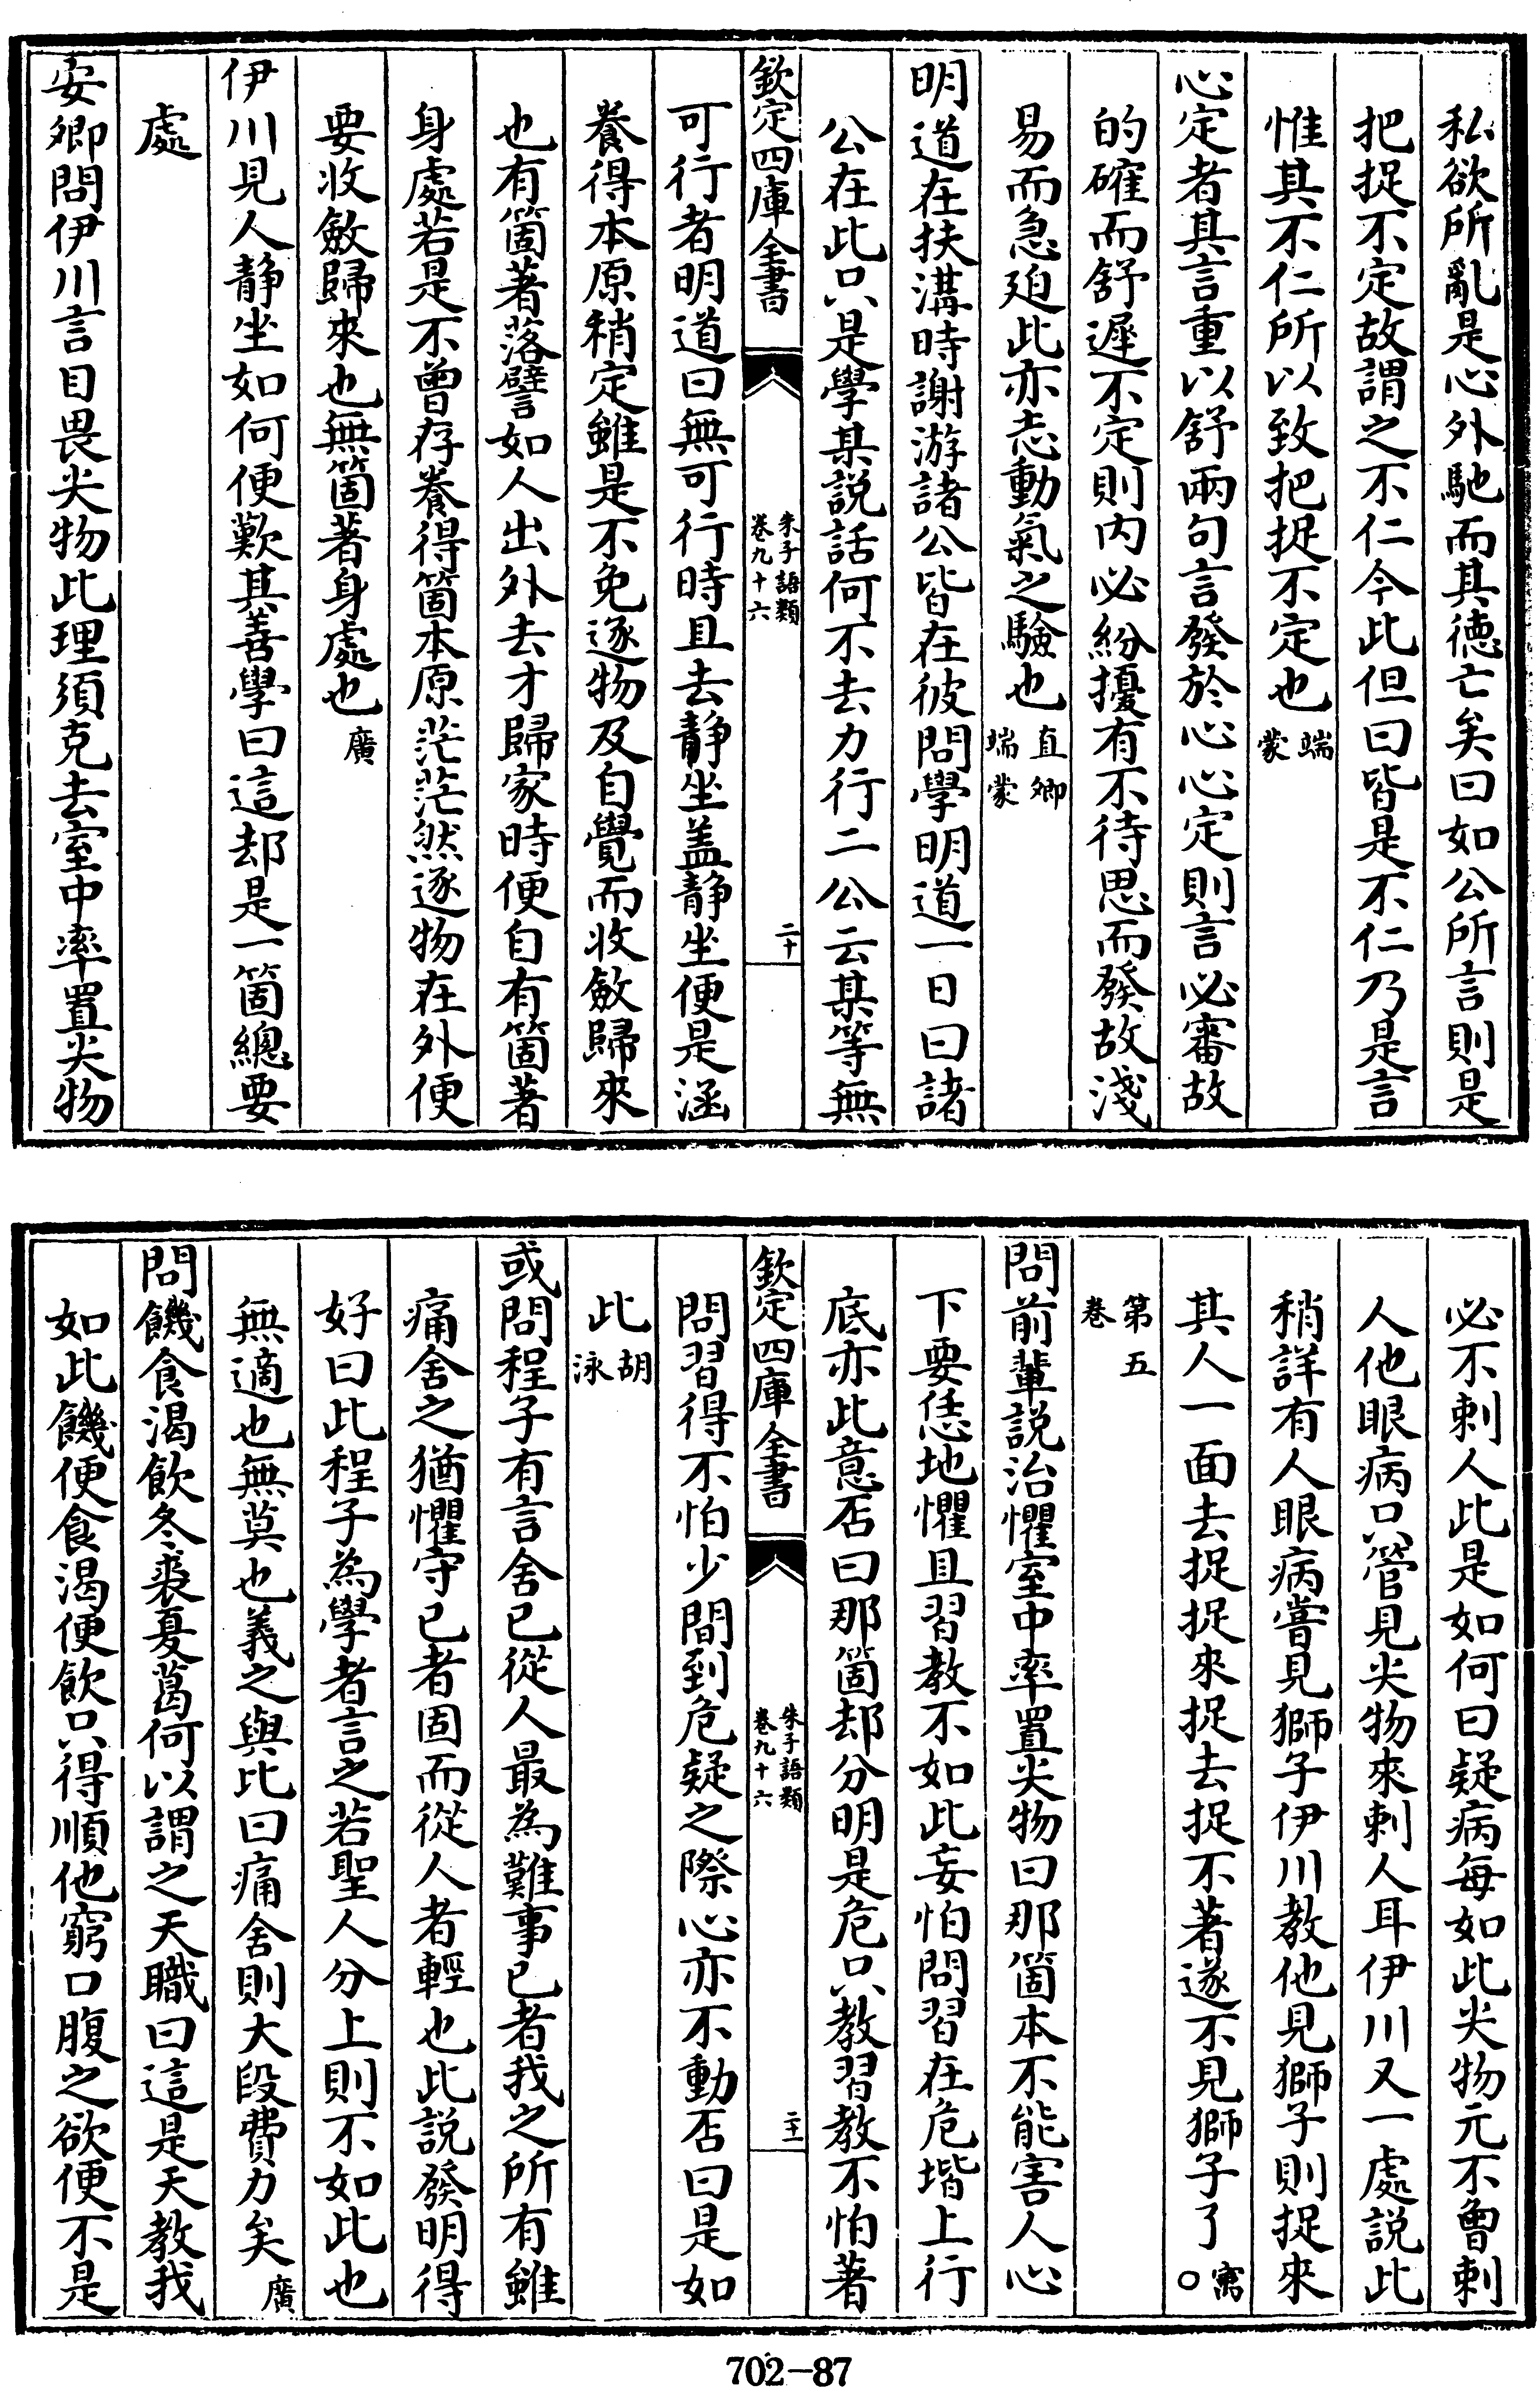 私欲所亂是心外馳而其徳亡矣曰如公所言則是
把捉不定故謂之不仁今此但曰皆是不仁乃是言
惟其不仁所以致把捉不定也端蒙
心定者其言重以舒兩句言發於心心定則言必審故
的確而舒遲不定則内必紛擾有不待思而發故淺
易而急廹此亦志動氣之驗也直卿端蒙
明道在扶溝時謝游諸公皆在彼問學明道一日曰諸
公在此只是學某説話何不去力行二公云某等無
欽定四庫全書
朱子語類
卷九十六
二十
可行者明道曰無可行時且去静坐盖静坐便是涵
養得本原稍定雖是不免逐物及自覺而收斂歸來
也有箇著落譬如人出外去才歸家時便自有箇著
身處若是不曾存養得箇本原茫茫然逐物在外便
要收斂歸來也無箇著身處也廣
伊川見人静坐如何便歎其善學曰這却是一箇總要
處
安卿問伊川言目畏尖物此理須克去室中率置尖物
必不刺人此是如何曰疑病每如此尖物元不曾刺
人他眼病只管見尖物來刺人耳伊川又一處説此
稍詳有人眼病嘗見獅子伊川教他見獅子則捉來
其人一面去捉捉來捉去捉不著遂不見獅子了寓○
第五卷
問前輩説治懼室中率置尖物曰那箇本不能害人心
下要恁地懼且習教不如此妄怕問習在危堦上行
底亦此意否曰那箇却分明是危只教習教不怕著
欽定四庫全書
朱子語類
卷九十六
二十一
問習得不怕少間到危疑之際心亦不動否曰是如
此胡泳
或問程子有言舍已從人最為難事已者我之所有雖
痛舍之猶懼守已者固而從人者輕也此説發明得
好曰此程子為學者言之若聖人分上則不如此也
無適也無莫也義之與比曰痛舍則大段費力矣廣
問饑食渴飲冬裘夏葛何以謂之天職曰這是天教我
如此饑便食渴便飲只得順他窮口腹之欲便不是
702-87